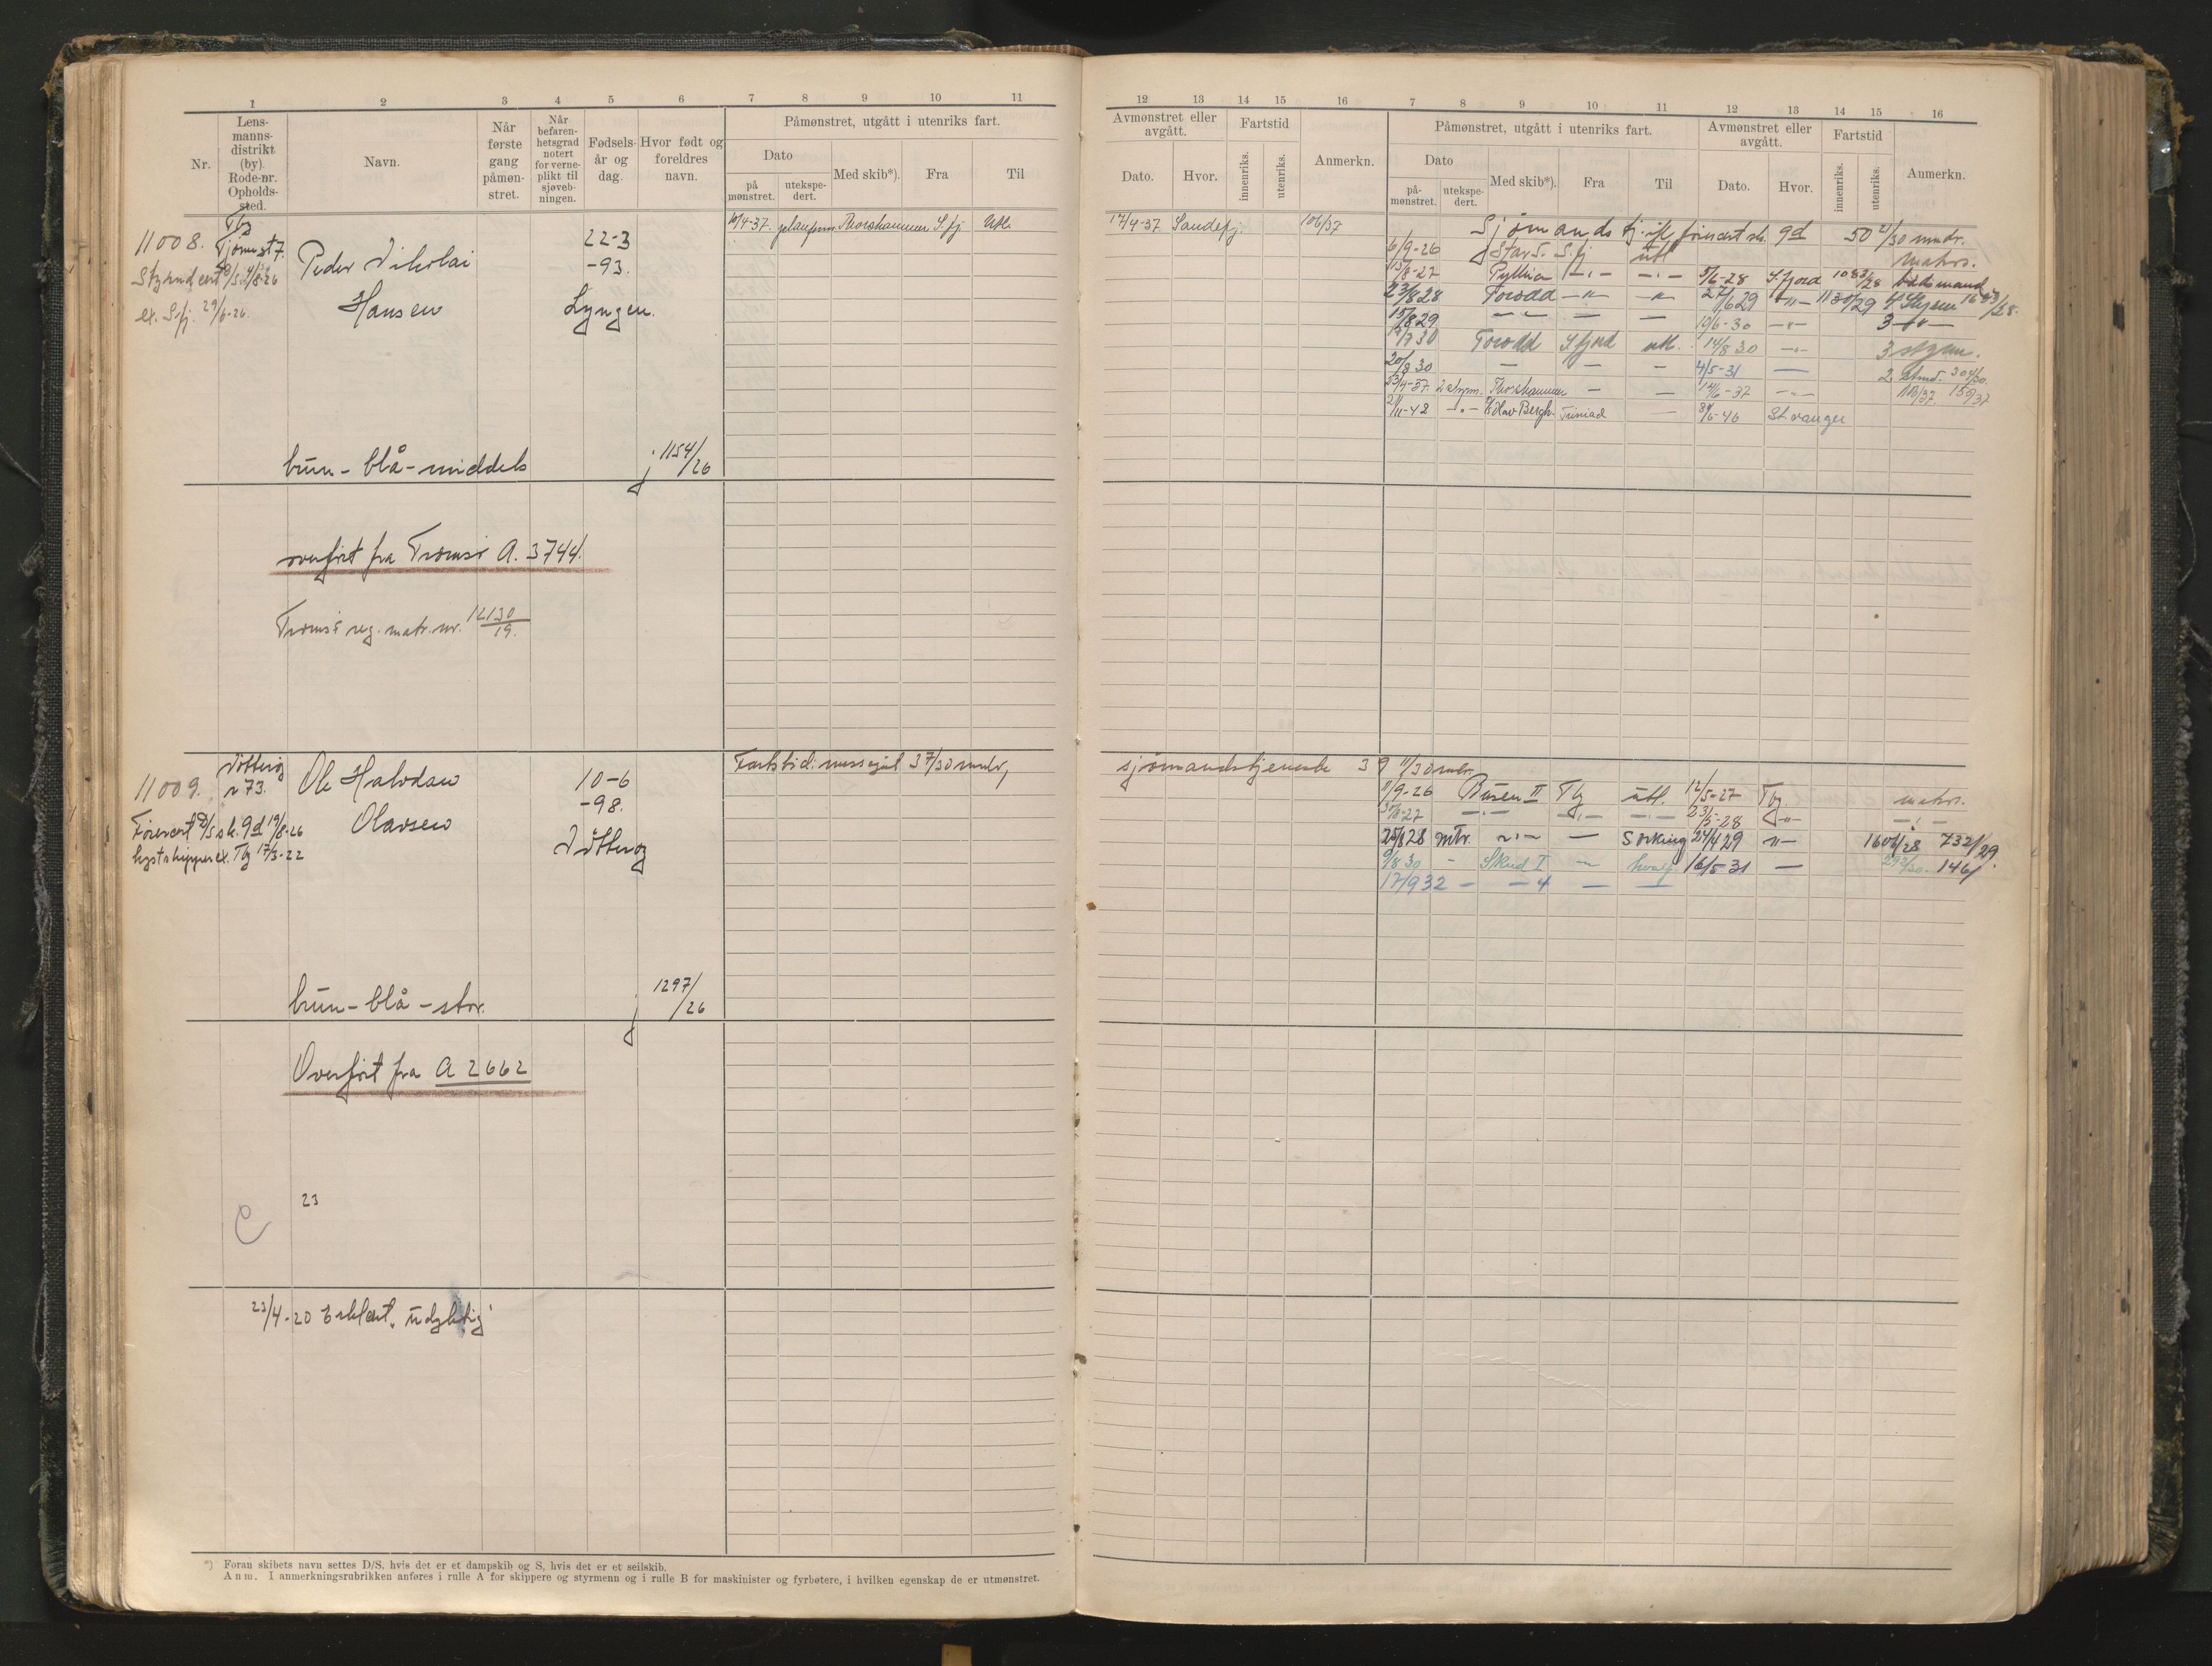 1 2 3 4 5 6 7 8 9 10 11
Nr.
Lens-
manns-
distrikt
(by).
Rode-nr.
Opholds-
sted.
Navn.
Når
første
gang
påmøn-
stret.
Når
befaren-
hetsgrad
notert
for verne-
plikt til
sjøveb-
ningen.
Fødsels-
år og
dag.
Hvor født og
foreldres
navn.
Påmønstret, utgått i utenriks fart.
Dato
på
mønstret.
utekspe-
dert.
Med skib*).
Fra
Til
11008.
Tbg
Peder Nikolai
Hansen
22-3
-93.
Lyngen.
ex. S.fj. 29/6-26.
10/4-37. Thorshammer S.fj. Utl.
brun - blå - middels
j. 1154/26
overført fra Tromsø A. 3744.
Tromsø reg. matr. nr.
11009.
Nøtterøy
n 73.
Ole Halvdan
Olavsen
10-6
-98.
Nøtterøy
Førercert D/S sk. 9d 19/8-26
kystskipperex. Tbg 17/3-22
Fartstid: 37/30 mndr,
brun - blå - stor.
j 1297/26
Overført fra A 2662
23
C
23/4-20 Erklært "udyktig"
*) Foran skibets navn settes D/S, hvis det er et dampskib og S, hvis det er et seilskib.
Anm. I anmerkningsrubrikken anføres i rulle A for skippere og styrmenn og i rulle B for maskinister og fyrbøtere, i hvilken egenskap de er utmønstret.
12 13 14 15 16 7 8 9 10 11 12 13 14 15 16
Avmønstret eller
avgått.
Dato.
Hvor.
Fartstid
innenriks.
utenriks.
Anmerkn.
Påmønstret, utgått i utenriks fart.
Dato
på-
mønstret.
utekspe-
dert.
Med skib*).
Fra
Til
Avmønstret eller
avgått.
Dato.
Hvor.
Fartstid
innenriks.
utenriks.
Anmerkn.
17/4-37 Sandefj. 106/37
Sjømandstj. ifl. førercert. sk. 9d 50 21/30 mndr.
6/9-26 Star I. S.fj utl matrs.
15/8-27 Pythia -"- -"- 5/6-28 S.fjord båtsmand
23/8 28 Torodd -"- -"- 27/6 29 -"- 1130/29
15/8 29 - - - 19/6-30 -"- 3 -"-
Torodd S.fjord utl. 14/8 30 -"- 3 styrm.
20/8 30 - - - 4/5-31 -
23/4-37 2 styrm. Thorshammer - - 14/6-37 -"-
2/11-42 -"- N. Hav Bergh. - 8/6-46 Stavanger
sjømandstjeneste 39 11/30 mndr.
11/9-26 Busen II Tbg utl. 12/5-27 Tbg matrs.
-"- -"- -"- 23/5-28 -"- -"-
25/8 28 mtr. -"- - 24/4 29 -"- 1606/28 732/29.
9/8 30 - Skud I - hvalf. 16/5-31 - 292/30. 146/
17/9 32 - - 4 - -